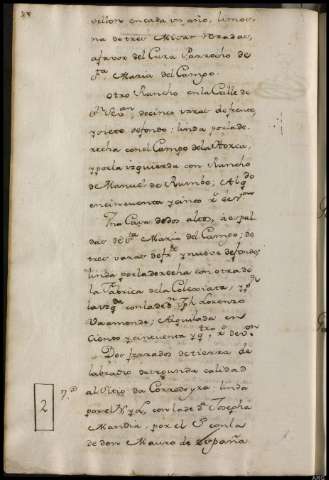 vellon en cada un año, limos-
na de tres Misas rezadas,
a favor del Cura Parrocho de
Sta. Maria del Campo.
Otro Rancho en la Calle de
de cinco varas de frente,
y siete de fondo; linda por la de-
recha con el Campo de la Horca,
y por la izquierda con Rancho
de Manuel de Rumbo; Alqdo
en cincuenta y cinco rs. de vn.
Una Casa de dos altos, a espal-
das de Sta. Maria del Campo; de
tres varas de fte. y nueve de fondo;
linda por la derecha con otra de
la Fabrica de la Colegiata, y pr.
la izqda. con la de Dn. Lorenzo
Vaamonde; Alquilada en
Ciento y cincuenta y qtro. rs. de vn.
Dos ferrados de tierra de
labradio de segunda calidad
al Sitio da Corredoyra: linda
por el N. y L. con la de Da. Josepha
Mandiá; por el P. con la
de don Mauro de España
2